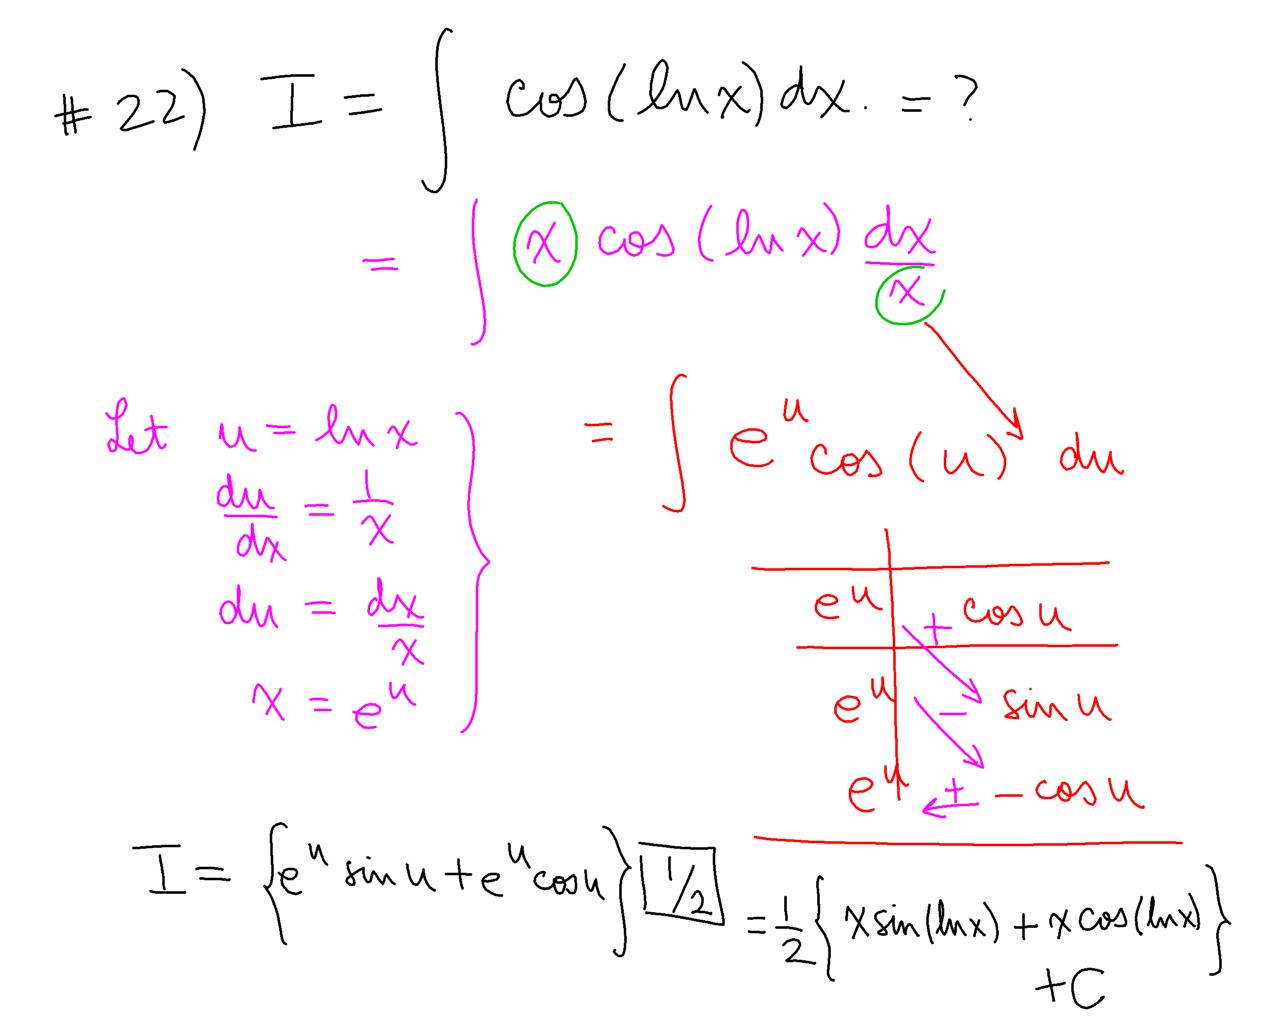 # 22) I = ∫ cos(ln x) dx. = ?
= ∫ x cos(ln x) dx/x
Let u = ln x
du/dx = 1/x
du = dx/x
x = e^u
= ∫ e^u cos(u) du
e^u + cos u
e^u − sin u
e^u + − cos u
I = {e^u sin u + e^u cos u} 1/2
= 1/2 {x sin(ln x) + x cos(ln x)}
+ C